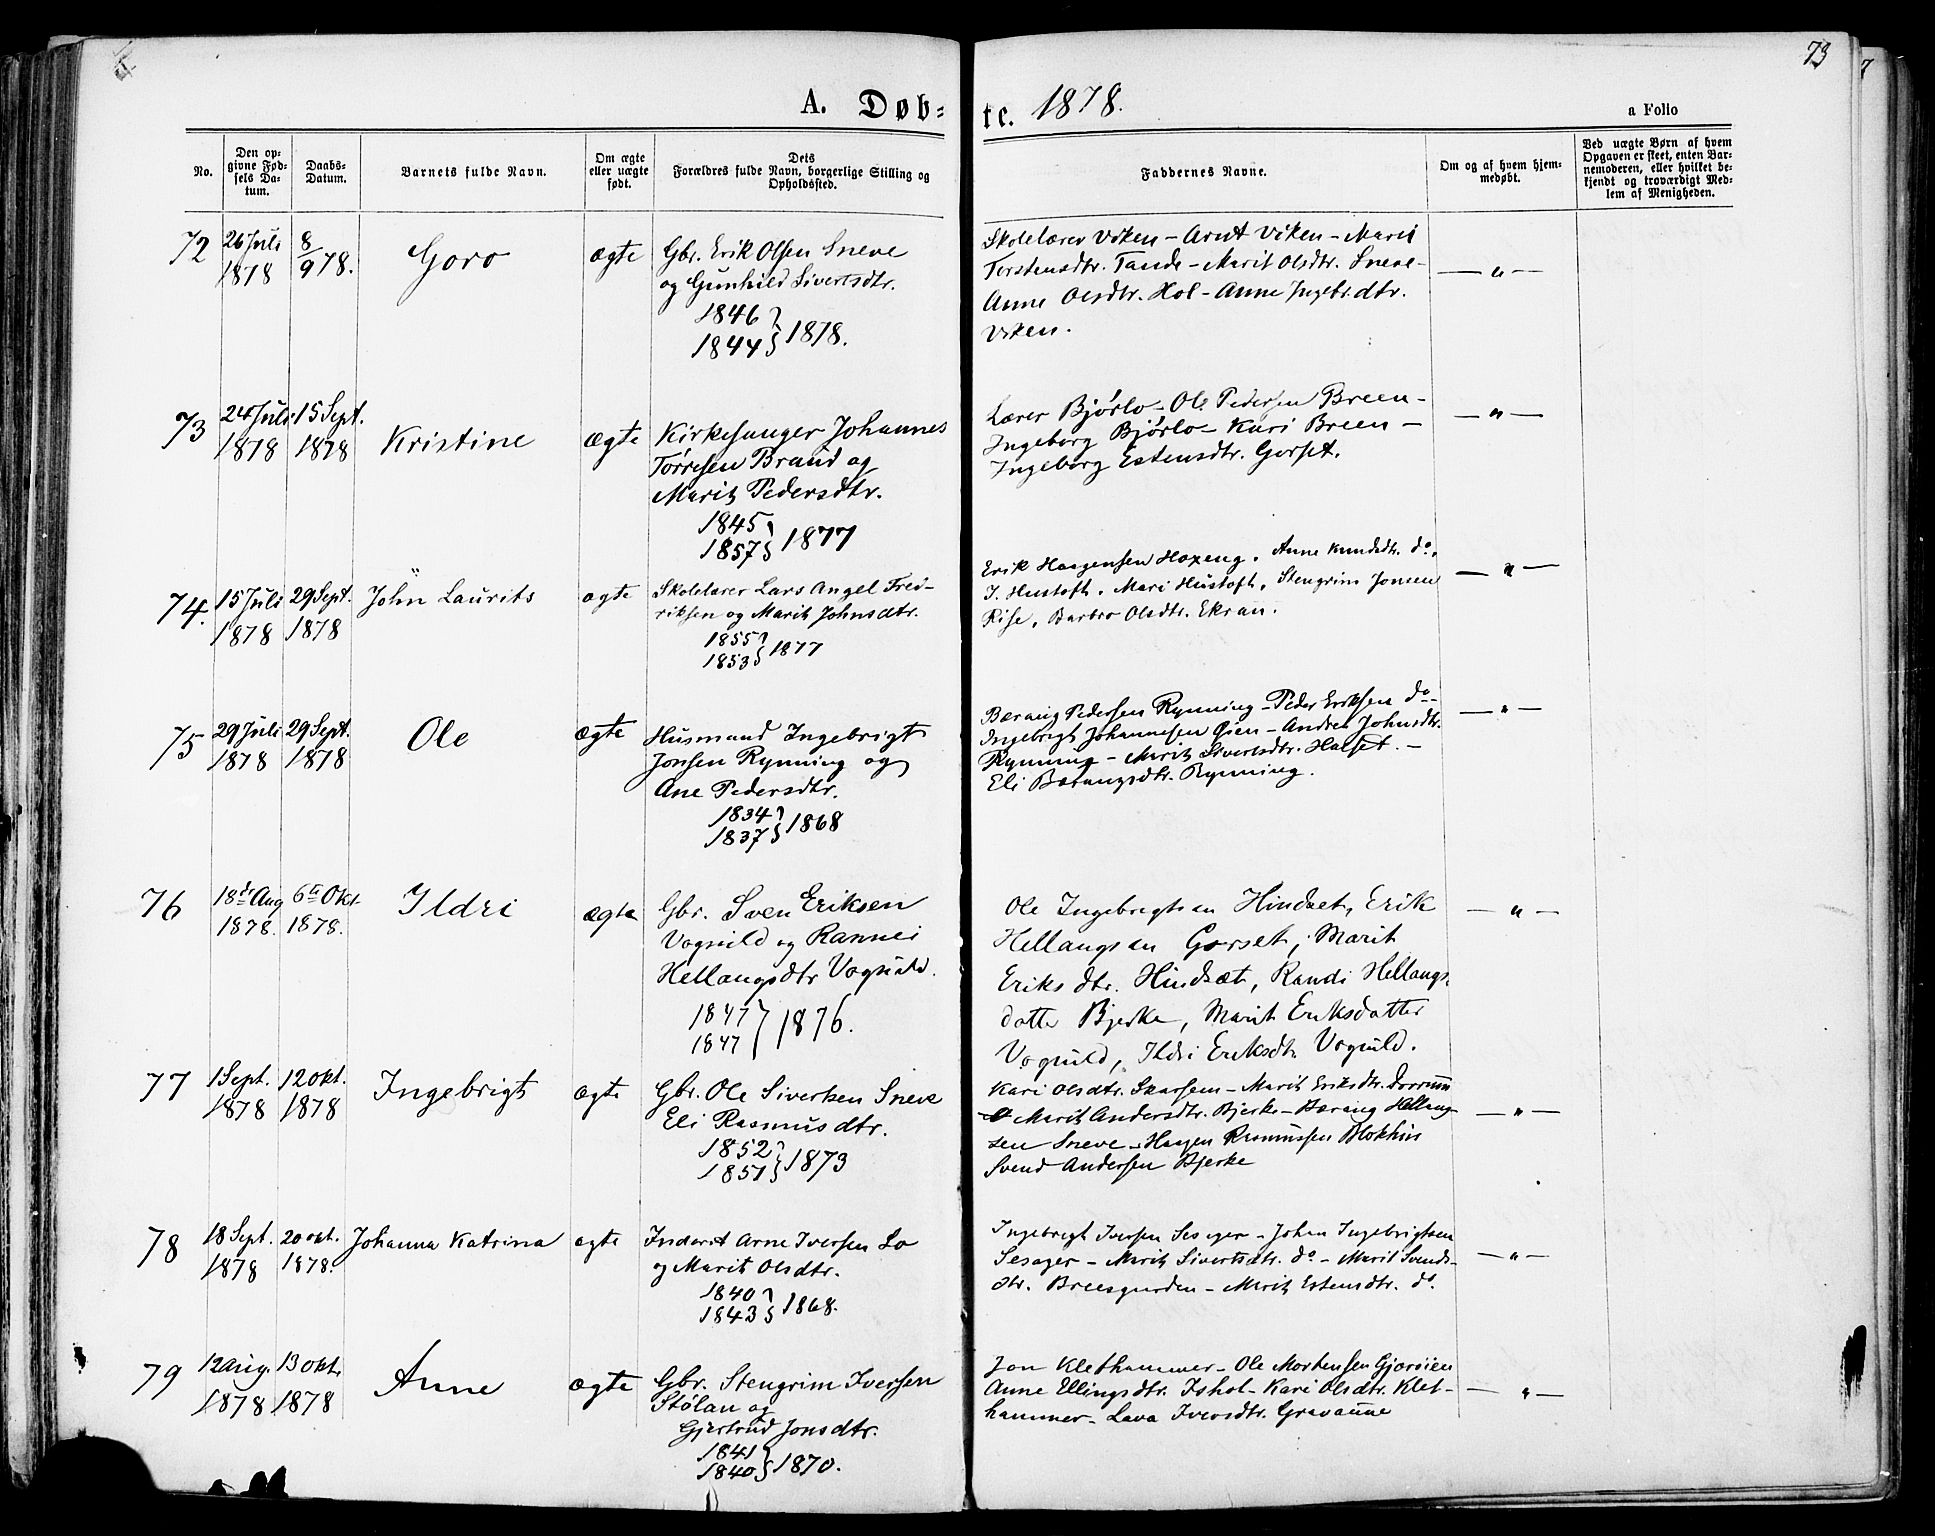 73
A. Døb=
te. 1878.
a Folio
No.
Den op-
givne Fød-
sels Da-
tum.
Daabs-
Datum.
Barnets fulde Navn.
Om ægte
eller uægte
født.
Dets
Forældres fulde Navn, borgerlige Stilling og
Opholdssted.
Faddernes Navne.
Om og af hvem hjem-
medøbt.
Ved uægte Børn af hvem
Opgaven er skeet, enten Bar-
nemoderen, eller hvilket be-
kjendt og troværdigt Med-
lem af Menigheden.
72
26 Juli
1878
8/9 78.
Goro
ægte
Gbr. Erik Olsen Sneve
og Gunhild Sivertsdtr.
1846
1844 } 1878.
Skolelærer Viken - Arnt Viken - Marit
Torstensdtr. Tande - Marit Olsdtr. Sneve -
Anne Olsdtr. Hol - Anne Ingebr.dtr.
Viken.
— " —
73
24 Juli
1878
15 Sept.
1878
Kristine
ægte
Kirkesanger Johannes
Tørresen Brand og
Marit Pedersdtr.
1845
1857 } 1877
Lærer Bjørlo - Ole Pedersen Breen -
Ingeborg Bjørlo - Kari Breen -
Ingeborg Estensdtr. Gorset.
— " —
74.
15 Juli
1878
29 Sept.
1878
John Laurits
ægte
Skolelærer Lars Angel Fred-
riksen og Marit Johnsdtr.
1855
1853 } 1877
Erik Haagensen Hoxeng. Anne Knudsdtr. do.
J. Hustoft. Mari Hustoft. Stengrim Jonsen
Rise, Barbro Olsdtr. Ekran.
— " —
75
29 Juli
1878
29 Sept.
1878
Ole
ægte
Husmand Ingebrigt
Jonsen Rynning og
Ane Pedersdtr.
1834
1837 } 1868
Bæraug Pedersen Rynning - Peder Eriksen do -
Ingebrigt Johannesen Øien - Andrea Johnsdtr.
Rynning - Marit Sivertsdtr. Halset. -
Eli Bæraugsdtr. Rynning.
— " —
76
18de Aug
1878.
6te Okt
1878.
Ildri
ægte
Gbr. Sven Eriksen
Vognild og Rannei
Hellaugsdtr Vognild.
1847
1847 } 1876.
Ole Ingebrigtsen Hindset, Erik
Hellaugsen Gorset, Marit
Eriksdtr. Hindsæt, Randi Hellaugs.
datter Bjerke, Marit Eriksdatter
Vognild, Ildri Eriksdtr. Vognild.
— " —
77
1 Sept.
1878
12 okt.
1878
Ingebrigt
ægte
Gbr. Ole Sivertsen Sneve
Eli Rasmusdtr.
1852
1851 } 1873
Kari Olsdtr. Skarsem - Marit Eriksdtr.
Marit Andersdtr. Bjerke - Bæraug Hellaug-
sen Sneve - Haagen Rasmussen Blokhus
Svend Andersen Bjerke
— " —
78
18 Sept.
1878
20 okt.
1878.
Johanna Katrina
ægte
Inderst Arne Iversen Lo
og Marit Olsdtr.
1840
1843 } 1868.
Ingebrigt Iversen Sesager - John Ingebrigtsen
Sesager - Marit Sivertsdtr. do - Marit Svends-
dtr. Breesgarden - Marit Estensdtr. do.
— " —
79
12 Aug.
1878
13 okt.
1878
Anne
ægte
Gbr. Stengrim Iversen
Stølan og
Gjertrud Jonsdtr.
1841
1840 } 1870.
Jon Klethammer - Ole Mortensen Gjorøien
Anne Ellingsdtr. Ishol - Kari Olsdtr. Klet-
hammer - Lava Iversdtr. Gravaune
— " —